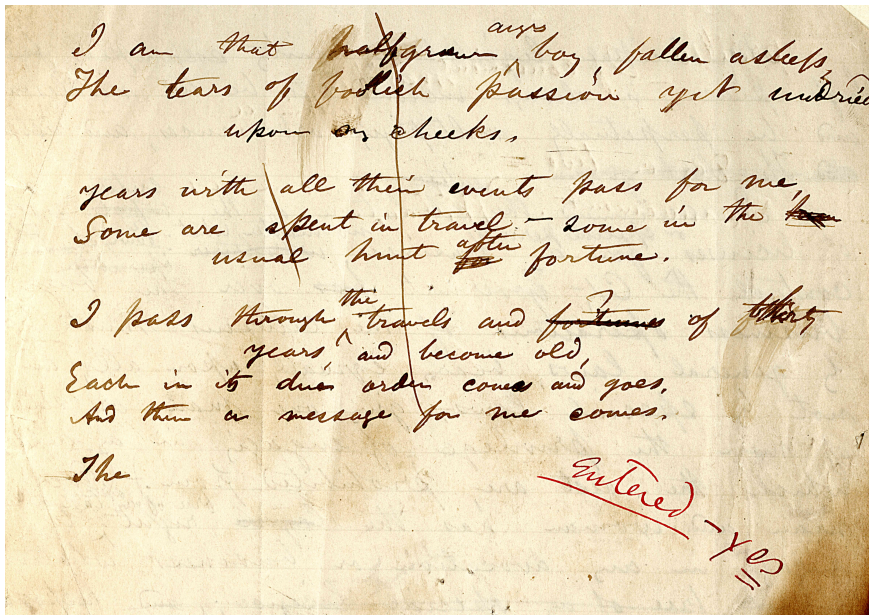 I am that halfgrown angry boy, fallen asleep
The tears of foolish passion yet undried
upon my cheeks.
years with all their events pass for me,
Some are spent in travel – some in the
usual hunt after for fortune.
I pass through the travels and fortunes ? of thirty
years, and become old,
Each in its due order comes and goes,
And then a message for me comes.
The
Entered – Yes